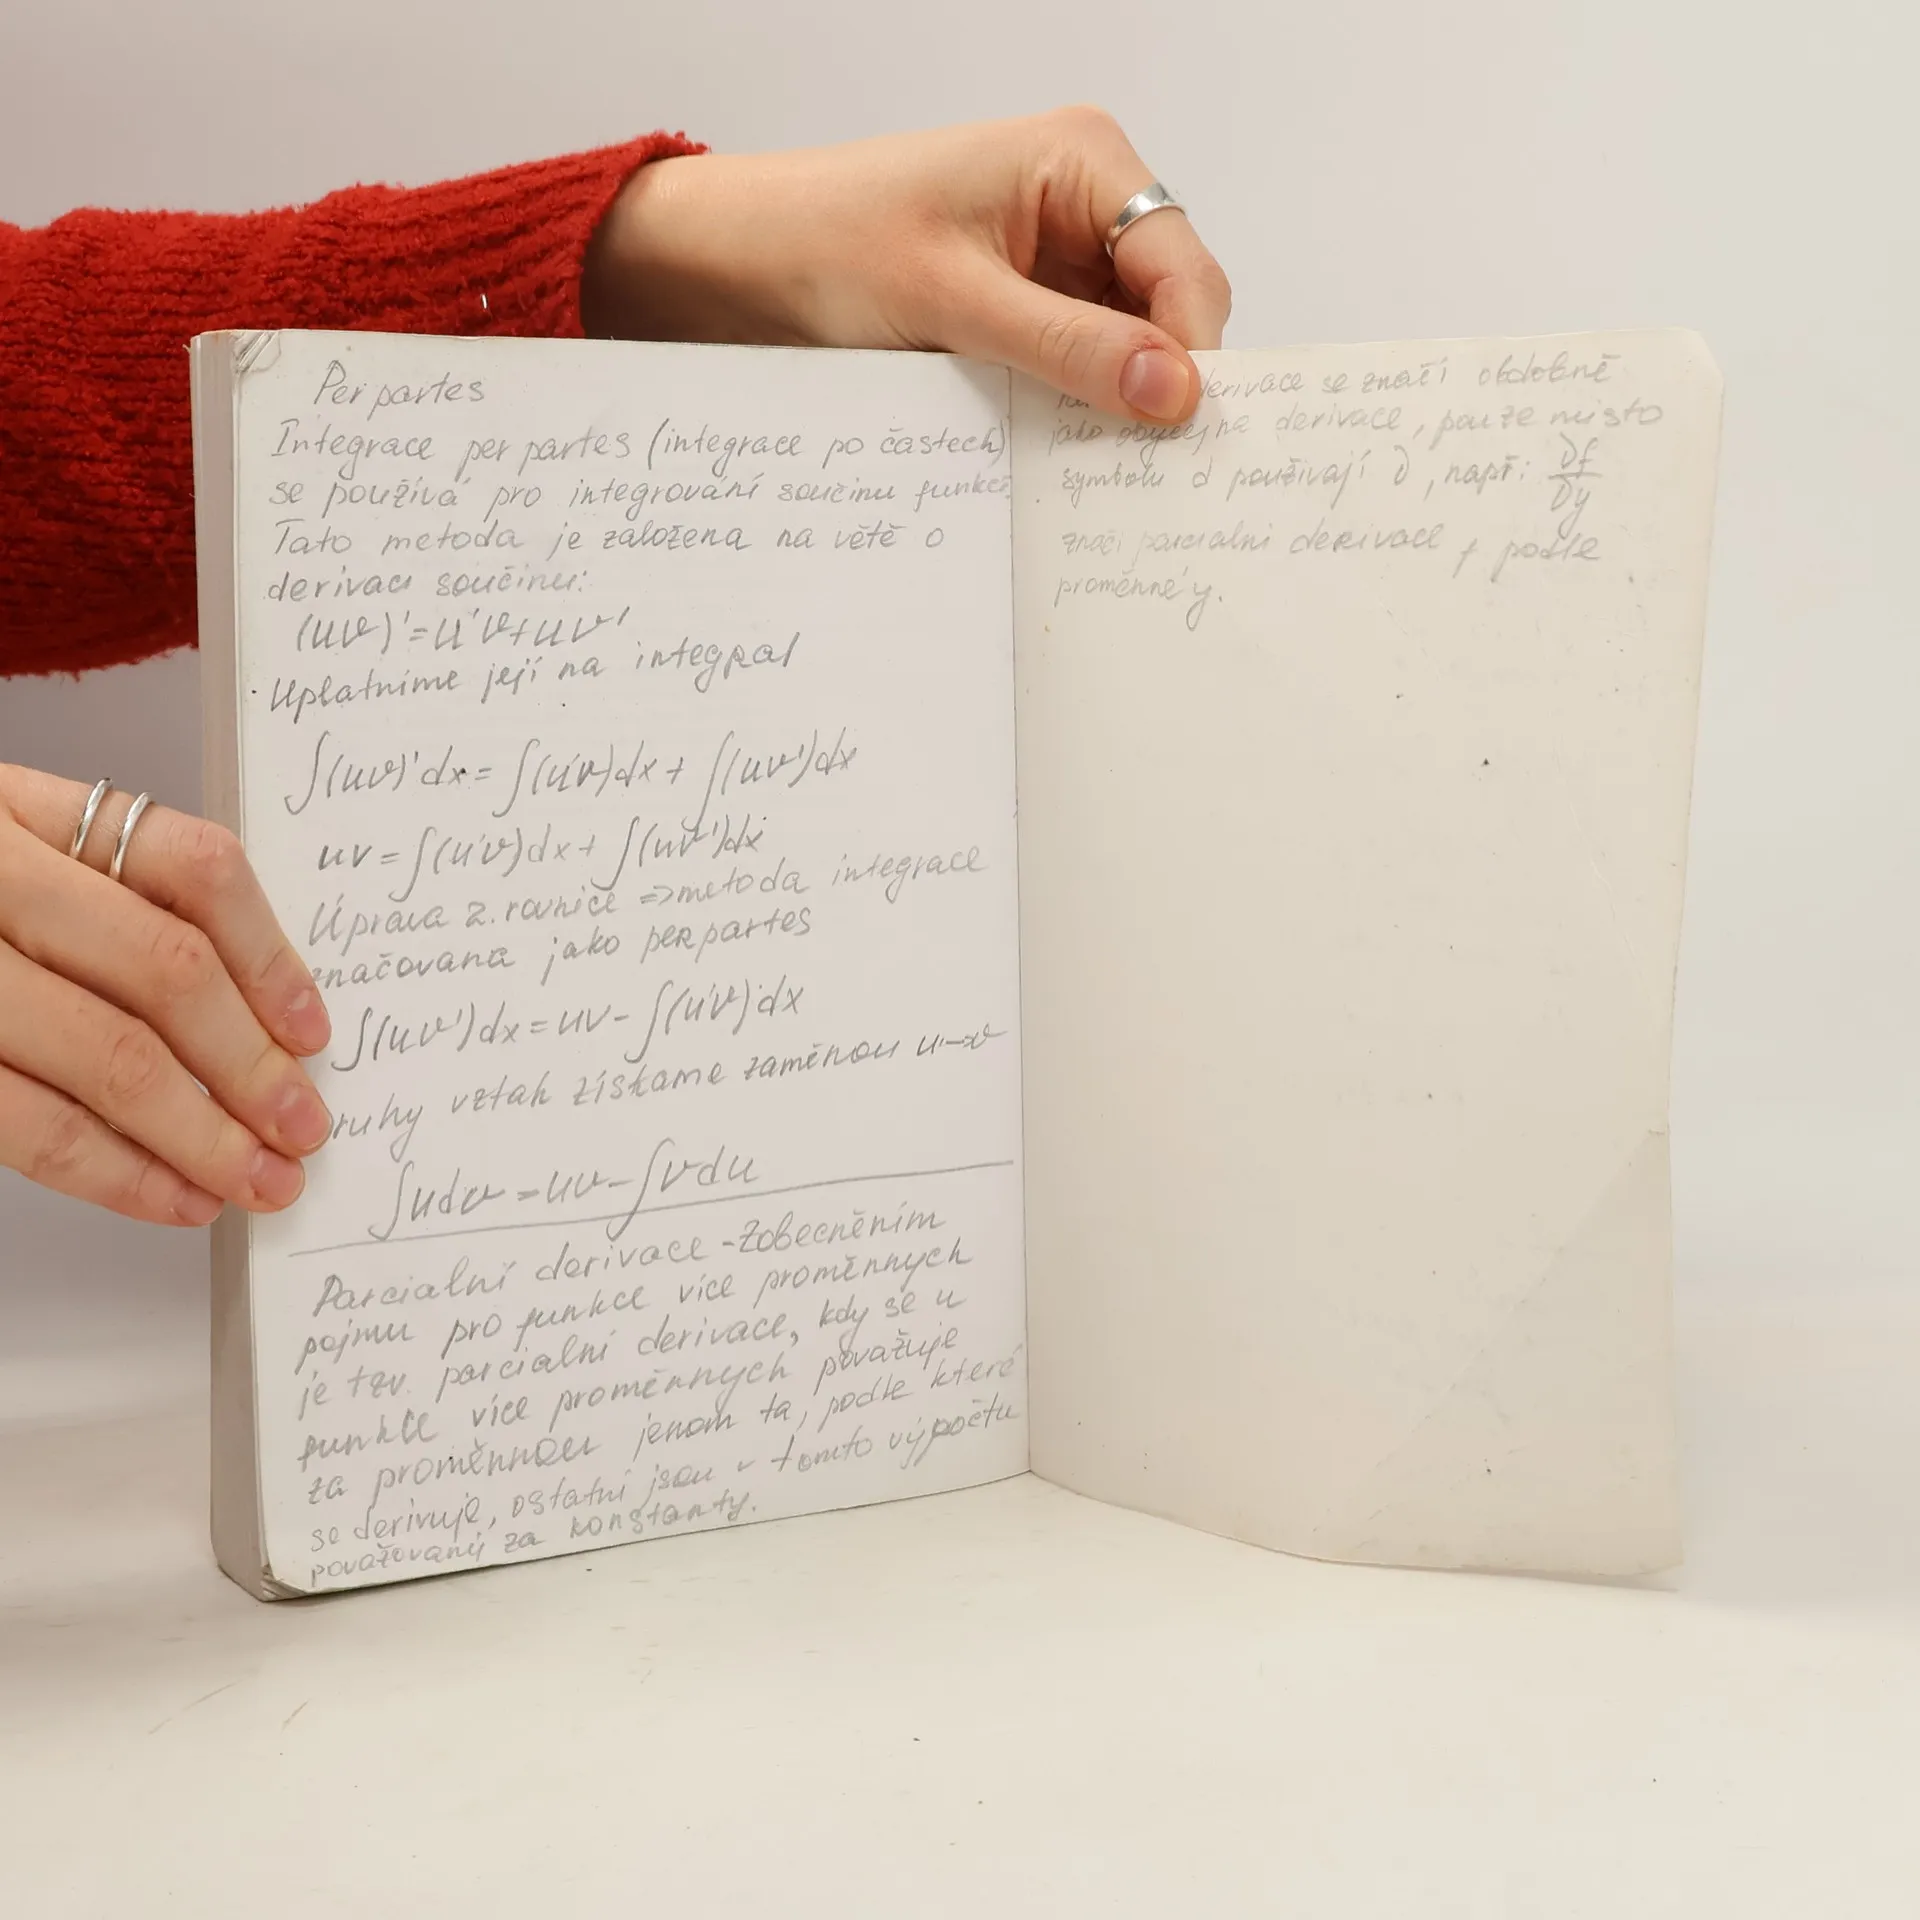 Per partes
Integrace per partes (integrace po častech)
se používá pro integrování součinu funkcí.
Tato metoda je založena na větě o
derivaci součinu:
(uv)'=u'v+uv'
Uplatníme její na integral
∫(uv)'dx=∫(u'v)dx+∫(uv')dx
uv=∫(u'v)dx+∫(uv')dx
Úprava 2. rovnice =>metoda integrace
značovana jako per partes
∫(uv')dx=uv-∫(u'v)dx
druhy vztah získame zaměnou u→v
∫udv=uv-∫vdu
Parcialní derivace - Zobecněním
pojmu pro funkce více proměnnych
je tzv. parcialní derivace, kdy se u
funkce více proměnnych považuje
za proměnnou jenom ta, podle které
se derivuje, ostatní jsou v tomto výpočtu
považovaný za konstanty.
derivace se značí obdobně
jako obyčejna derivace, pouze misto
symbolu d používají ∂, např: ∂f/∂y
značí parcialni derivace f podle
proměnné y.